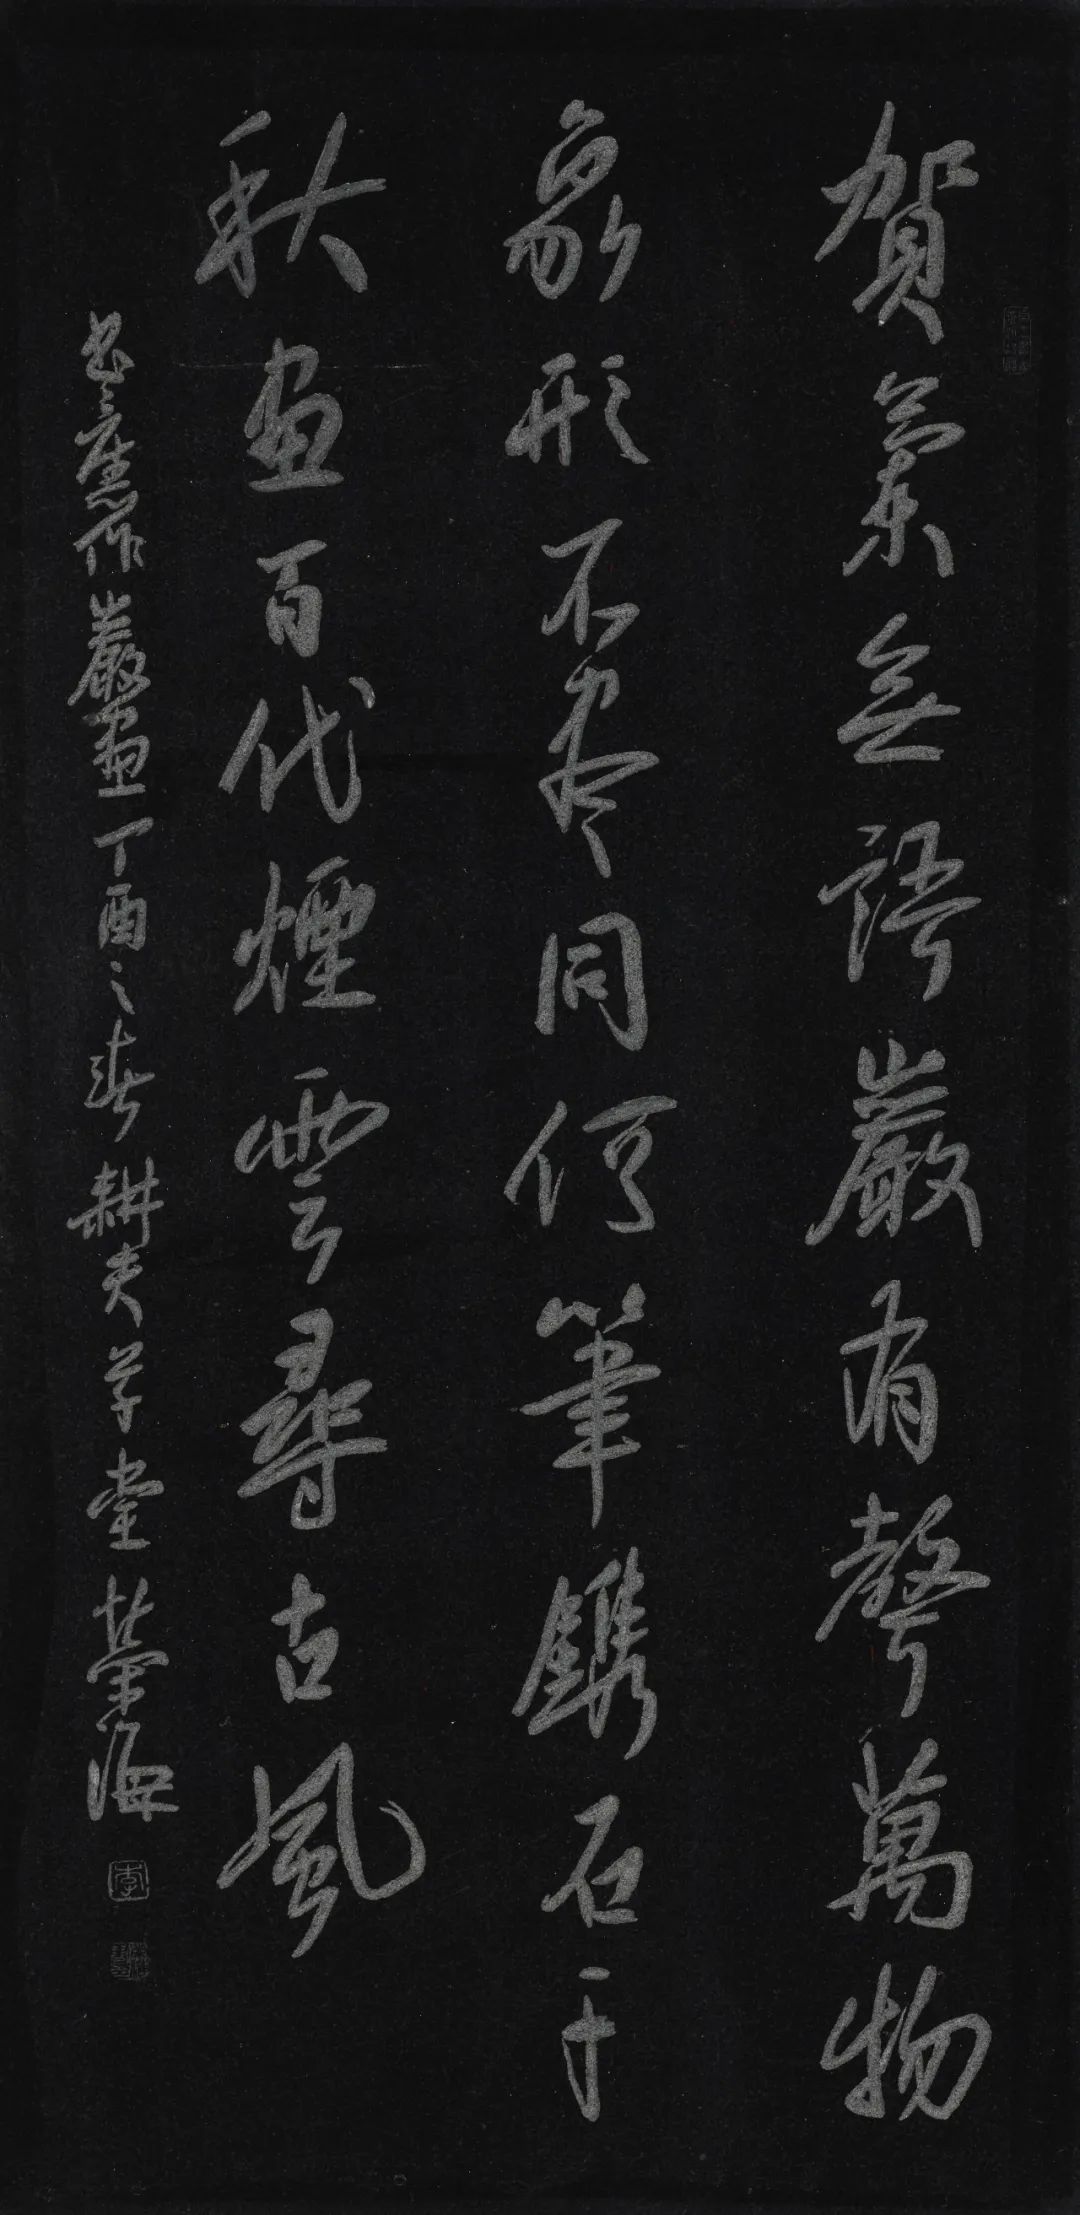 賀蘭無語巖有聲萬物
象形不盡同何筆鐫石千
秋畫百代煙雲尋古風
巖畫丁酉之春耕夫草堂榮海
李